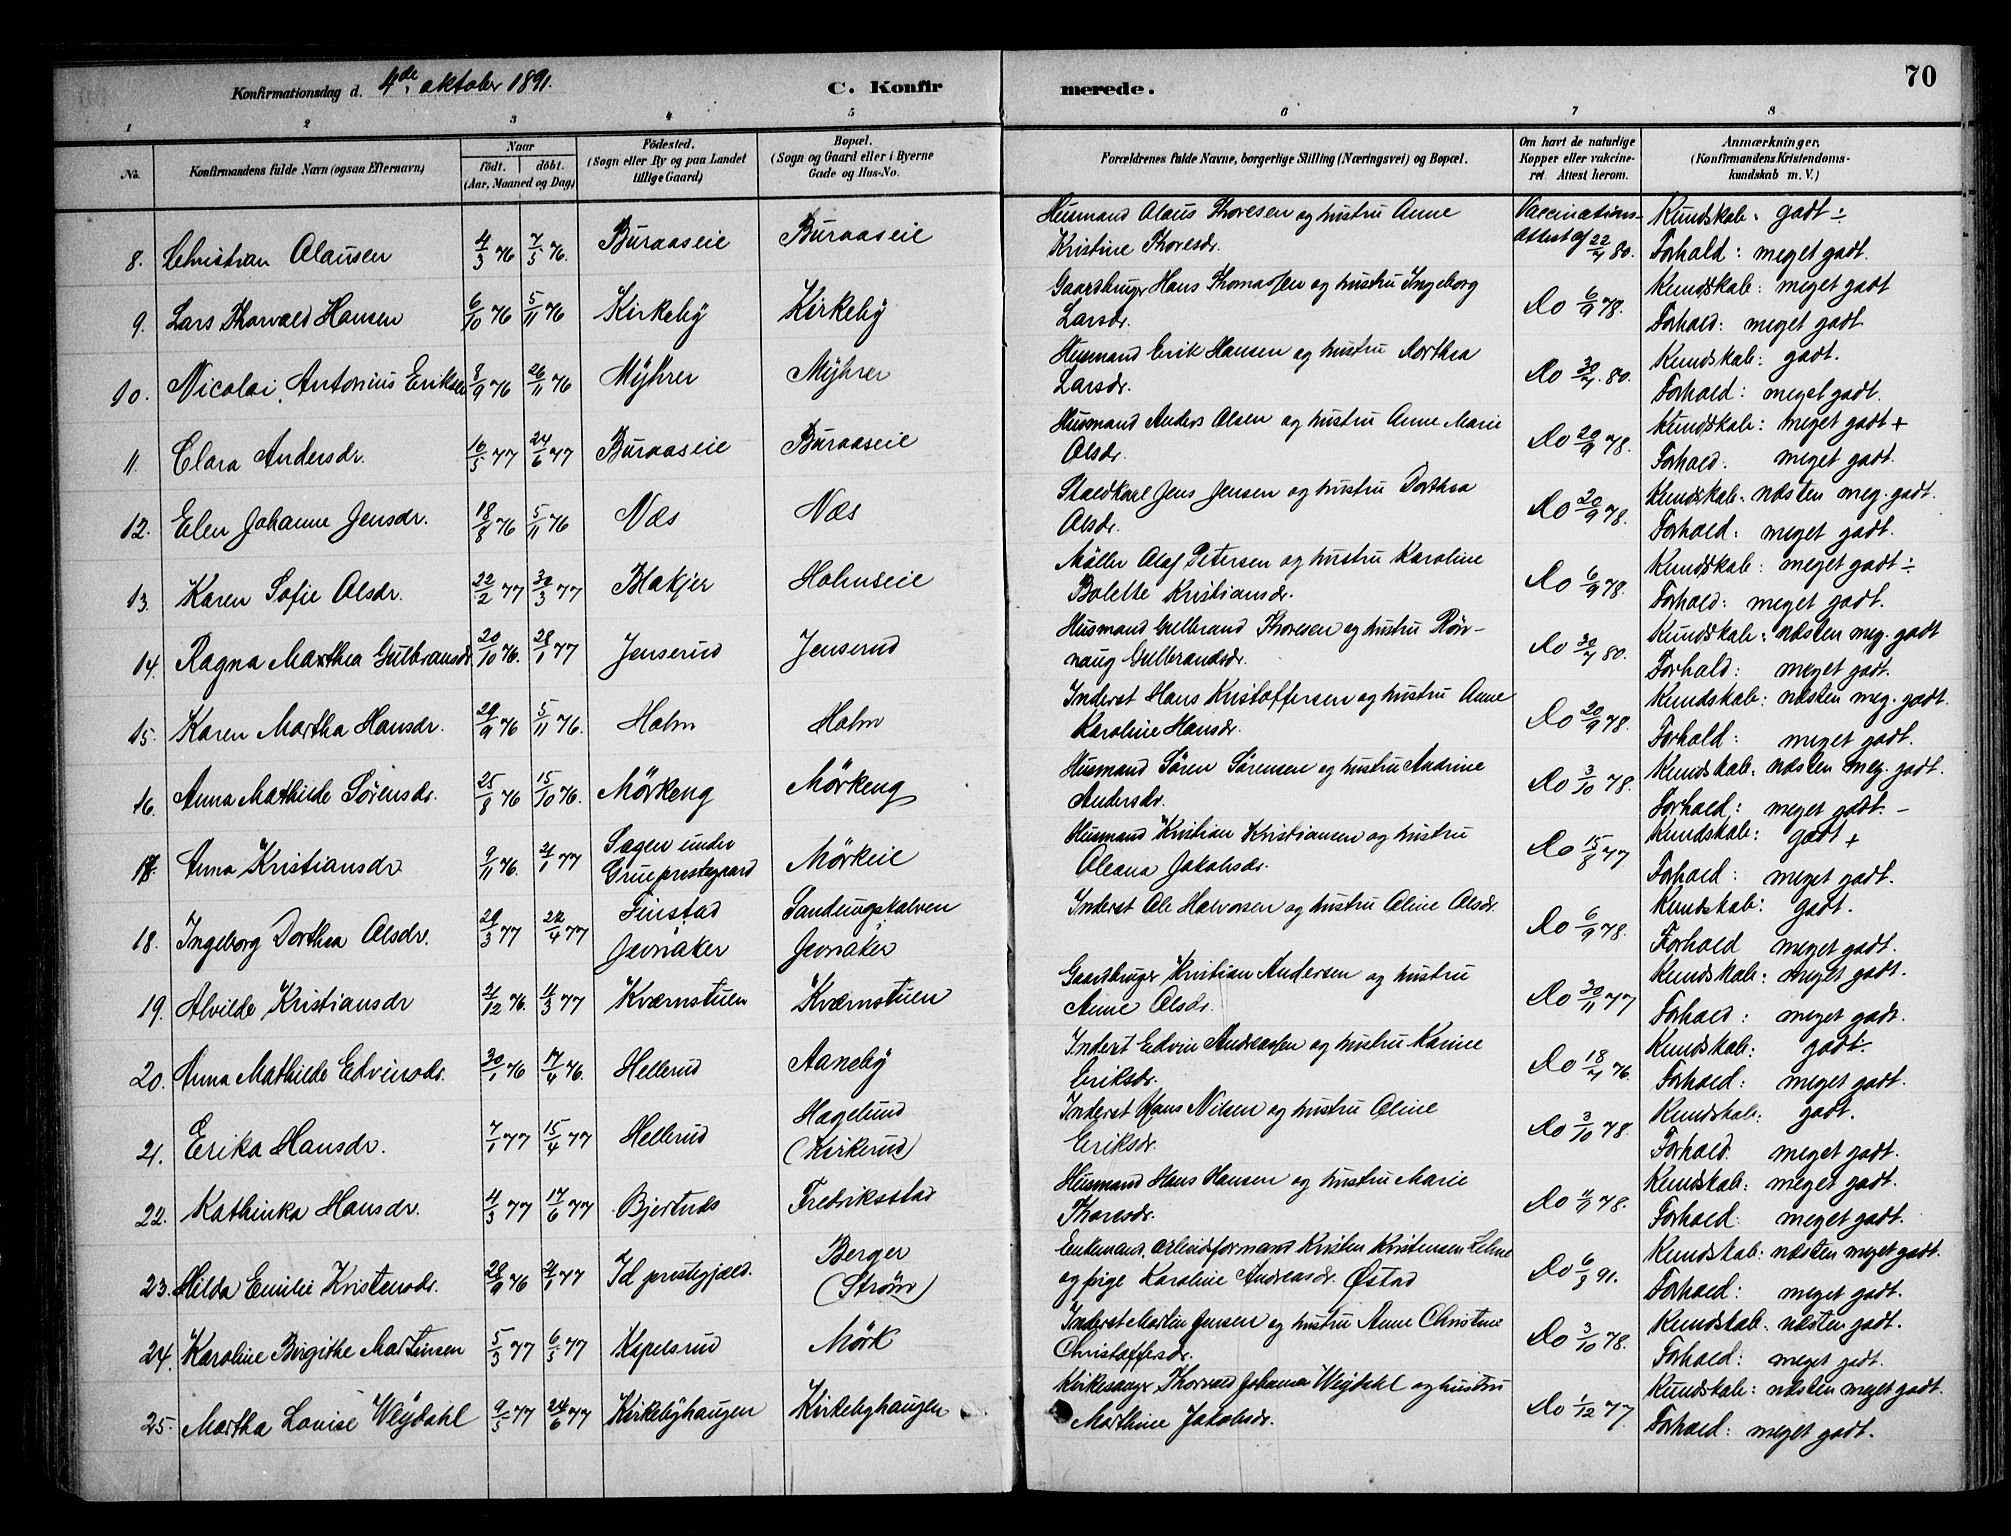 70
Konfirmationsdag d. 4de oktober 1891.
C. Konfirmerede.
1 2 3 4 5 6 7 8
No. Konfirmandens fulde Navn (ogsaa Efternavn) Naar født. døbt. (Aar, Maaned og Dag) Födested. (Sogn eller By og paa Landet tillige Gaard) Bopæl. (Sogn og Gaard eller i Byerne Gade og Hus-No. Forældrenes fulde Navne, borgerlige Stilling (Næringsvei) og Bopæl. Om havt de naturlige Kopper eller vakcineret. Attest herom. Anmærkninger, (Konfirmandens Kristendomskundskab m. V.)
8. Christian Olausen 4/3 76 7/5 76. Buraaseie Buraaseie Husmand Olaus Thoresen og hustru Anne Kristine Thoresdr. Vaccinations-Attest af 22/7 80. Kundskab: godt ÷ Forhold: meget godt.
9. Lars Thorvald Hansen 6/10 76 5/11 76 Kirkeby Kirkeby Gaardbruger Hans Thomassen og hustru Ingeborg Larsdr. Do 6/9 78. Kundskab: meget godt Forhold: meget godt
10. Nicolai Antonius Eriksen 8/9 76 26/11 76 Myhrer Myhrer Husmand Erik Hansen og hustru Dorthea Larsdr. Do 30/7 80. Kundskab: godt. Forhold: meget godt.
11. Clara Andersdr. 10/5 77 24/6 77 Buraaseie Buraaseie Husmand Anders Olsen og hustru Anne Marie Olsdr. Do 20/9 78. Kundskab: meget godt + Forhold: meget godt.
12. Elen Johanne Jensdr. 18/8 76 5/11 76 Næs Næs Staldkarl Jens Jensen og hustru Dorthea Olsdr. Do 20/9 78. Kundskab: næsten meg. godt. Forhold: meget godt.
13. Karen Sofie Olsdr. 22/2 77 30/3 77 Blakjer Holmseie Møller Olaf Petersen og hustru Karoline Bolette Kristiansdr. Do 6/9 78. Kundskab: meget godt ÷ Forhold: meget godt.
14. Ragna Marthea Gulbransdr 20/10 76. 28/1 77 Jenserud Jenserud Husmand Gulbrand Thoresen og hustru Rönnaug Gulbrandsdr. Do 30/7 80. Kundskab: næsten meg. godt Forhold: meget godt.
15. Karen Martha Hansdr. 29/9 76 5/11 76. Holm Holm Inderst Hans Kristoffersen og hustru Anne Karoline Hansdr. Do 20/9 78. Kundskab: næsten meg. godt. Forhold: meget godt.
16. Anna Mathilde Sörensdr. 25/8 76 15/10 76. Mörkeng Mörkeng Husmand Sören Sörensen og hustru Andrine Andersdr. Do 3/10 78. Kundskab: næsten meg. godt. Forhold: meget godt. -
17. Anna Kristiansdr 9/11 76. 21/1 77 Sagen under Grueprestegaard Mörkeie Husmand Kristian Kristiansen og hustru Oleana Jakobsdr. Do 15/8 77 Kundskab: godt + Forhold: meget godt.
18. Ingeborg Dorthea Olsdr. 29/3 77 22/4 77 Finstad Jevnaker Sandungskalven Jevnaker Inderst Ole Halvorsen og hustru Oline Olsdr. Do 6/9 78. Kundskab: godt. Forhold meget godt.
19. Alvilde Kristiansdr 21/12 76. 4/3 77 Kværnstuen Kværnstuen Gaardbruger Kristian Andersen og hustru Anne Olsdr. Do 30/11 77 Kundskab: meget godt. Forhold: meget godt.
20. Anna Mathilde Edvinsdr. 30/1 76 17/4 76. Hellerud Aaneby Inderst Edvin Andreassen og hustru Karine Eriksdr. Do 18/7 76. Kundskab: godt ÷ Forhold: meget godt.
21. Erika Hansdr. 7/1 77 15/4 77 Hellerud Hagelund (Kirkerud) Inderst Hans Nilsen og hustru Oline Eriksdr. Do 3/10 78. Kundskab: godt. Forhold. meget godt.
22. Kathinka Hansdr. 4/3 77 17/6 77 Bjertnds Fredriksstad Husmand Hans Hansen og hustru Marie Thoresdr. Do 78. Kundskab: meget godt. Forhold: meget godt.
23. Hilda Emilie Kristensdr. 28/9 76 21/1 77 Id prestegjæld. Berger (Ström) Enkemand, arbeidsformand Kristen Kristensen og pige Karoline Andreasdr. Østad Do 6/8 91. Kundskab: næsten meget godt. Forhold: meget godt.
24. Karoline Birgithe Martinsen 5/3 77 6/5 77 Kapelsrud Mörk Inderst Martin Jensen og hustru Anne Christine Christoffersdr. Do 3/10 78. Kundskab. næsten godt. Forhold: meget godt.
25. Martha Lovise Weydahl 9/5 77 24/6 77 Kirkebyhaugen Kirkebyhaugen Kirkesanger Thorvald Johannes Weydahl og hustru Marthine Jakobsdr. Do 1/12 77. Kundskab: næsten meget godt. Forhold: meget godt.